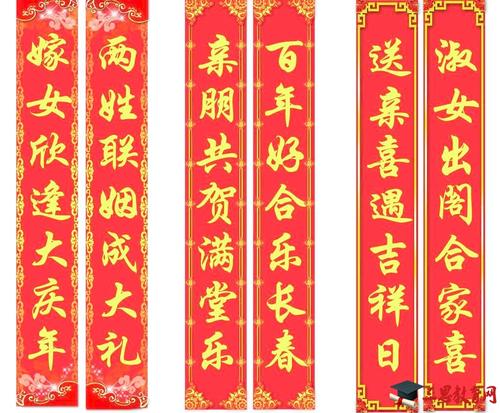 淑女出阁合家喜
送亲喜遇吉祥日
百年好合乐长春
亲朋共贺满堂乐
两姓联姻成大礼
嫁女欣逢大庆年